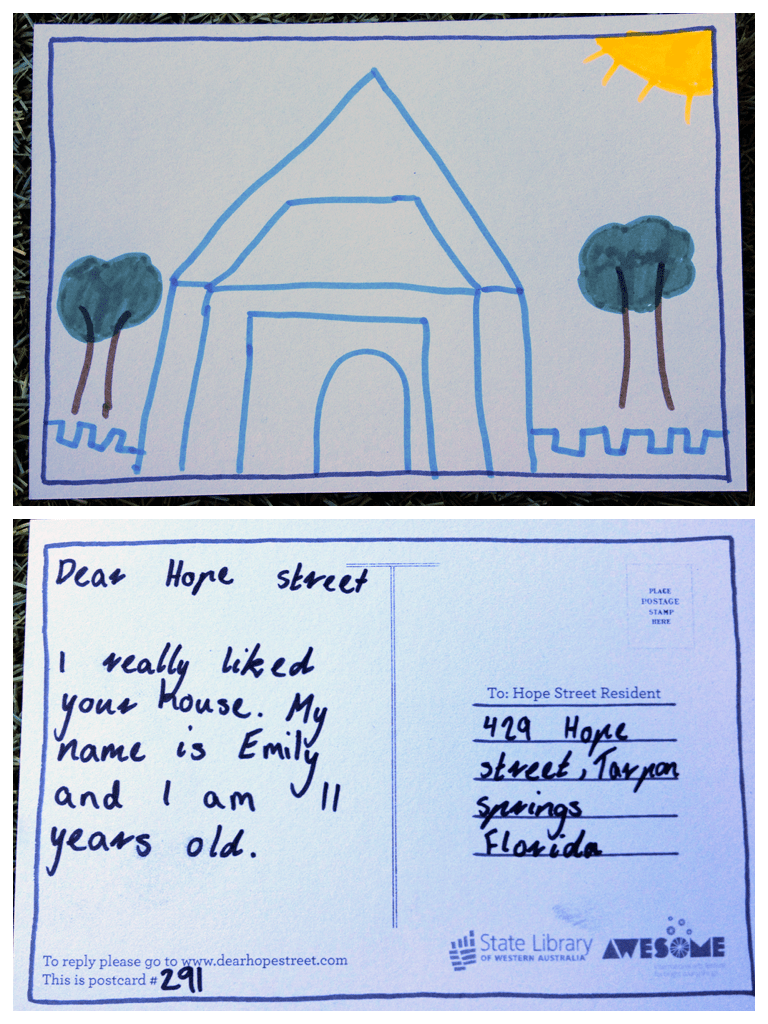 Dear Hope street
I really liked
your house. My
name is Emily
and I am 11
years old.
To reply please go to www.dearhopestreet.com
This is postcard # 291
PLACE
POSTAGE
STAMP
HERE
To: Hope Street Resident
429 Hope
street, Tarpon
springs
Florida
State Library
OF WESTERN AUSTRALIA
AWESOME